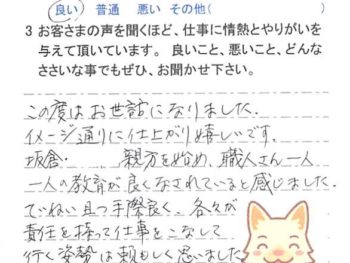 良い 普通 悪い その他( )
3 お客さまの声を聞くほど、仕事に情熱とやりがいを
与えて頂いています。 良いこと、悪いこと、どんな
ささいな事でもぜひ、お聞かせ下さい。
この度はお世話になりました.
イメージ通りに仕上がり嬉しいです.
親方を始め、職人さん一人
一人の教育が良くなされていると感じました.
ていねい且つ手際良く、各々が
責任を持って仕事をこなして
行く姿勢は頼もしく思いました